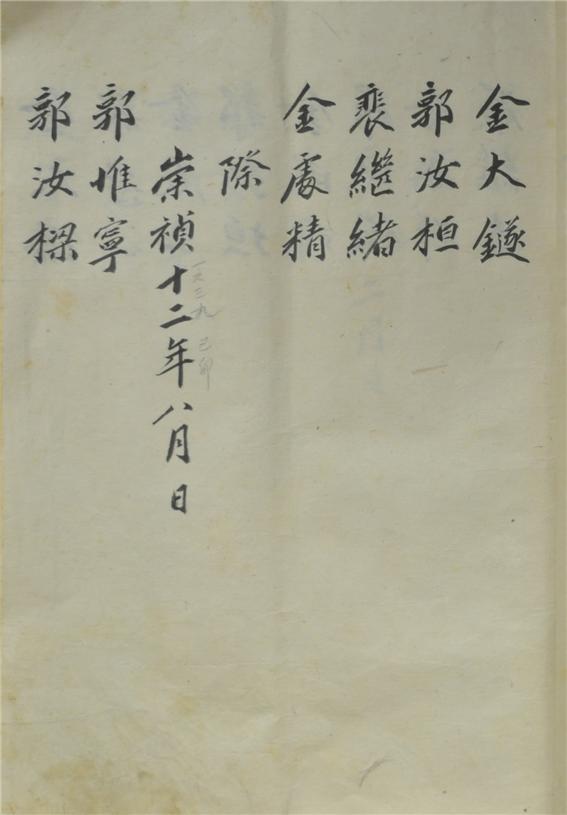 金大鐩
郭汝桓
裴繼緖
金處精
除
崇禎十二年八月日
一六三九 己卯
郭惟寧
郭汝樑